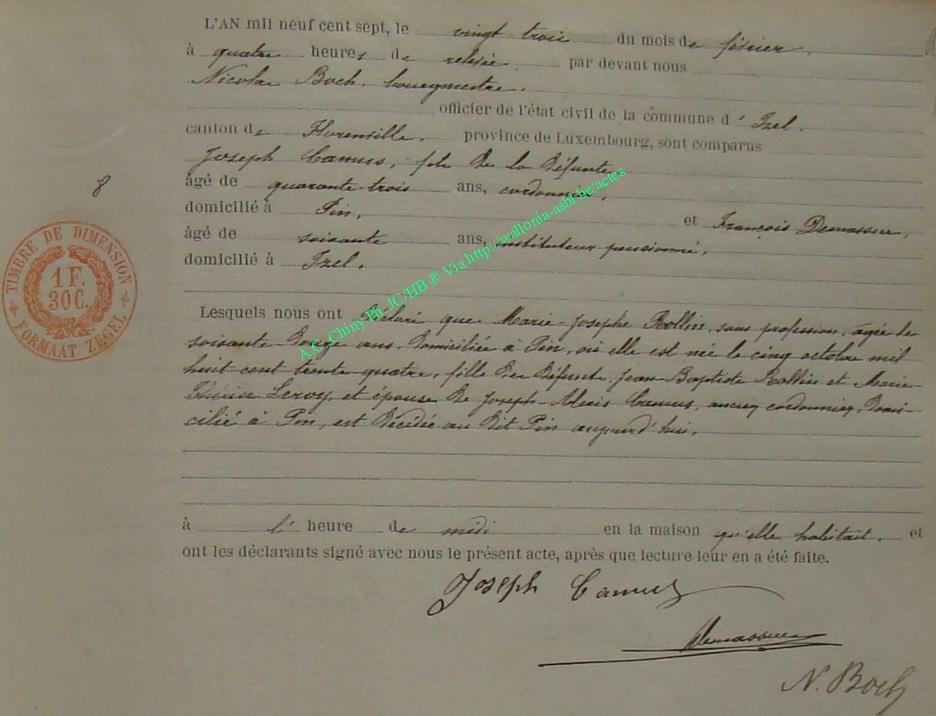 L'AN mil neuf cent sept, le vingt trois du mois de février,
à quatre heures de relevée par devant nous
Nicolas Boch, bourgmestre,
officier de l'état civil de la commune d'Izel,
canton de Florenville, province de Luxembourg, sont comparus
Joseph Camus, fils de la défunte,
8
âgé de quarante-trois ans, cordonnier,
domicilié à Pin, et François Demasseur,
âgé de soixante ans, instituteur pensionné,
domicilié à Izel,
TIMBRE DE DIMENSION
1 F.
30 C.
FORMAAT ZEGEL
A.C. Chiny Ph. JC/HB ® Via http://wallonia-asbl.be/actes
Lesquels nous ont déclaré que Marie-Josephe Rollin, sans profession, âgée de
soixante-douze ans, domiciliée à Pin, où elle est née le cinq octobre mil
huit cent trente quatre, fille des défunts Jean-Baptiste Rollin et Marie-
Thérèse Leroy, et épouse de Joseph-Alexis Camus, ancien cordonnier, domi-
cilié à Pin, est décédée au dit Pin aujourd'hui,
à l' heure de midi en la maison qu'elle habitait, et
ont les déclarants signé avec nous le présent acte, après que lecture leur en a été faite.
Joseph Camus
Demasseur
N. Boch